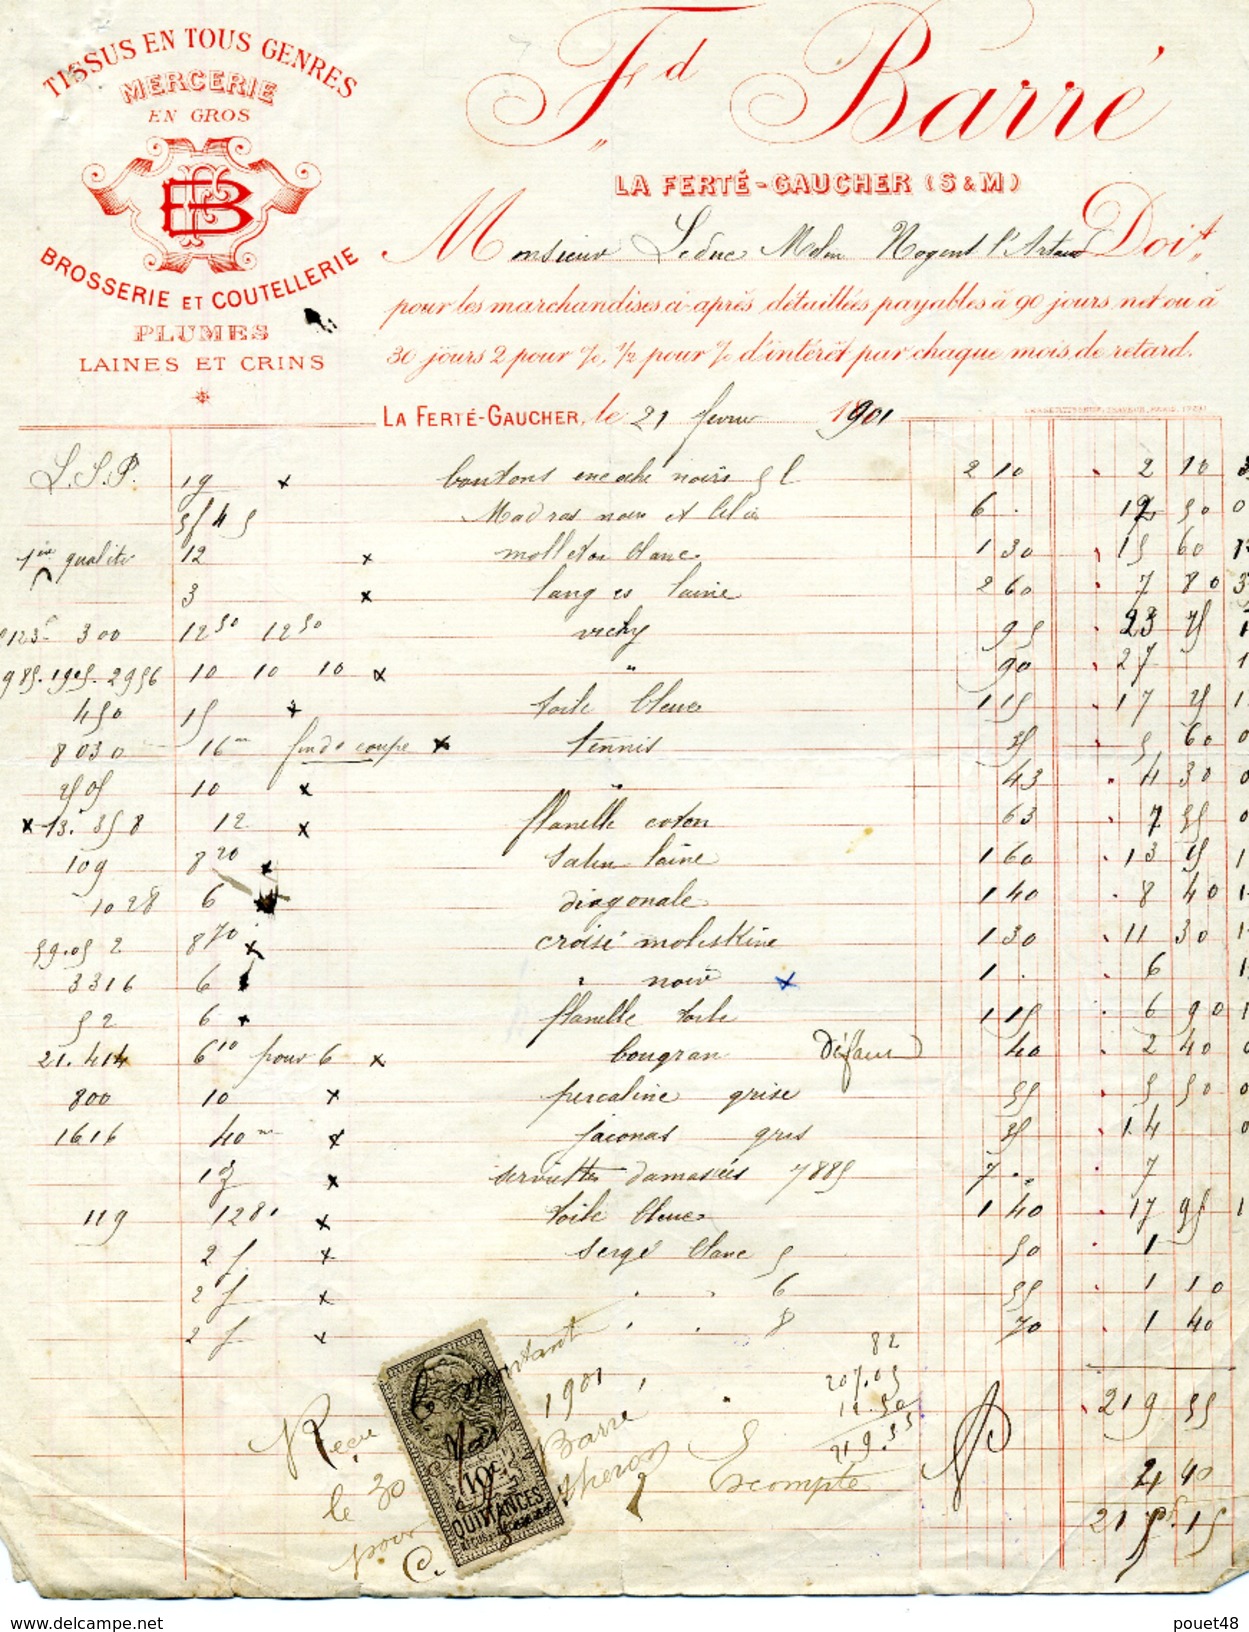 TISSUS EN TOUS GENRES
MERCERIE
EN GROS
EB
BROSSERIE ET COUTELLERIE
PLUMES
LAINES ET CRINS
Fd Barré
LA FERTÉ-GAUCHER (S & M)
Monsieur Leduc Mdm Nogent l'Artaud Doit
pour les marchandises ci-après détaillées payables à 90 jours net ou à
30 jours 2 pour %, 1/2 pour % d'intérêt par chaque mois de retard.
LA FERTÉ-GAUCHER, le 21 février 1901
L.S.P. 19 x boutons encoche noirs 5 L 2 10 2 10
Madras noir et lilas 6 . 12 50
1ère qualité 12 x molleton blanc 1 30 15 60
3 x langes laine 2 60 7 80
300 12 50 12 50 vichy 95 23 75
985. 1905. 2956 10 10 10 x " 90 27
450 15 x toile bleue 1 15 17 25
8030 16 m fond coupe x tennis 35 5 60
2505 10 x " 43 4 30
x 13. 358 12 x flanelle coton 63 7 55
109 8 20 x satin laine 1 60 13 15
1028 6 diagonale 1 40 8 40
59.05 2 8 70 x croisé moleskine 1 30 11 30
3316 6 " noir x 1 . 6
52 6 x flanelle toile 1 15 6 90
21. 414 6 10 pour 6 x bougran Défaut 40 2 40
800 10 x percaline grise 55 5 50
1616 40 m x jaconas gris 35 14
x serviettes damassées 7885 7 . 7
119 12 80 x toile bleue 1 40 17 95
2 f x sergé blanc 5 50 1
2 f x " " 6 55 1 10
2 f x " " 8 70 1 40
82
207.05
12.50
219.55
219 55
Escompte 4 40
215 15
Reçu le montant
le 30 Mai 1901
pour Barré
C. Theron
10c
QUITTANCES
www.delcampe.net
pouet48